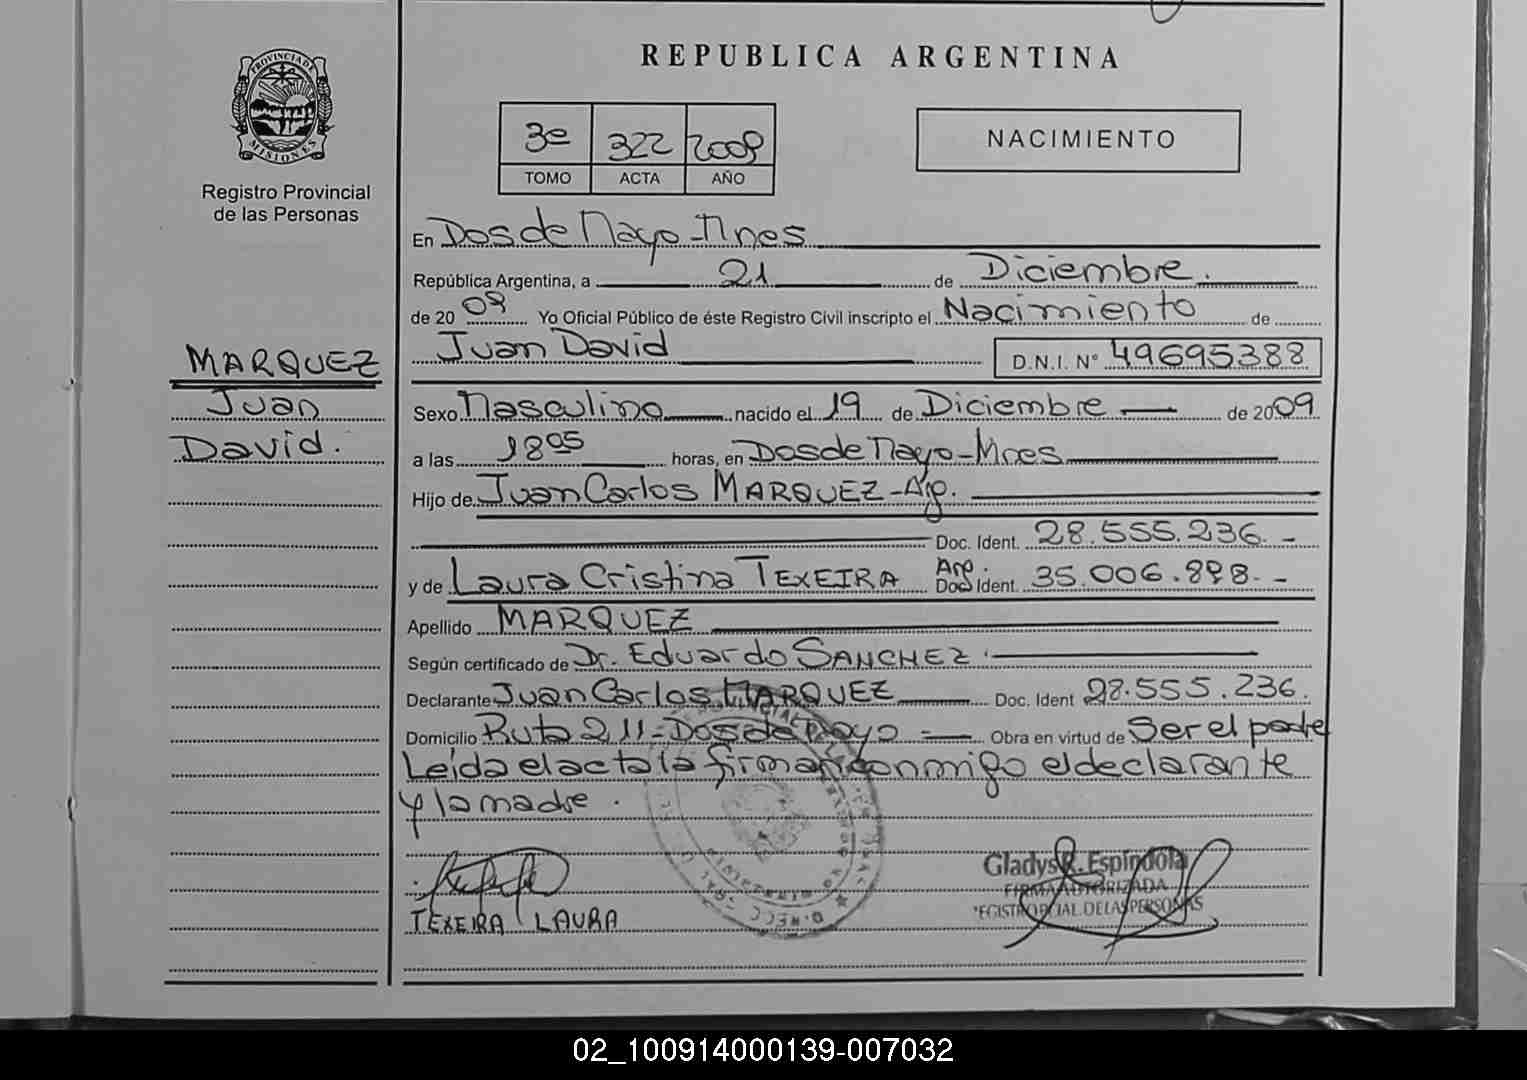 REPUBLICA ARGENTINA
PROVINCIA DE MISIONES
Registro Provincial
de las Personas
3º 322 2009
TOMO ACTA AÑO
NACIMIENTO
En Dos de Mayo - Mnes
República Argentina, a 21 de Diciembre.
de 2009 Yo Oficial Público de éste Registro Civil inscripto el Nacimiento de
Juan David D.N.I. N° 49695388
MARQUEZ
Juan
David.
Sexo Masculino nacido el 19 de Diciembre de 2009
a las 18 05 horas, en Dos de Mayo - Mnes
Hijo de Juan Carlos MARQUEZ - Arg.
Doc. Ident. 28.555.236. -
y de Laura Cristina TEXEIRA Arg. Doc Ident. 35.006.898. -
Apellido MARQUEZ
Según certificado de Dr. Eduardo SANCHEZ.
Declarante Juan Carlos MARQUEZ Doc. Ident 28.555.236.
Domicilio Ruta 211 - Dos de Mayo Obra en virtud de Ser el padre
Leída el acta la firman conmigo el declarante
y la madre.
TEXEIRA LAURA
Gladys R. Espíndola
FIRMA AUTORIZADA
REGISTRO PCIAL. DE LAS PERSONAS
02_100914000139-007032